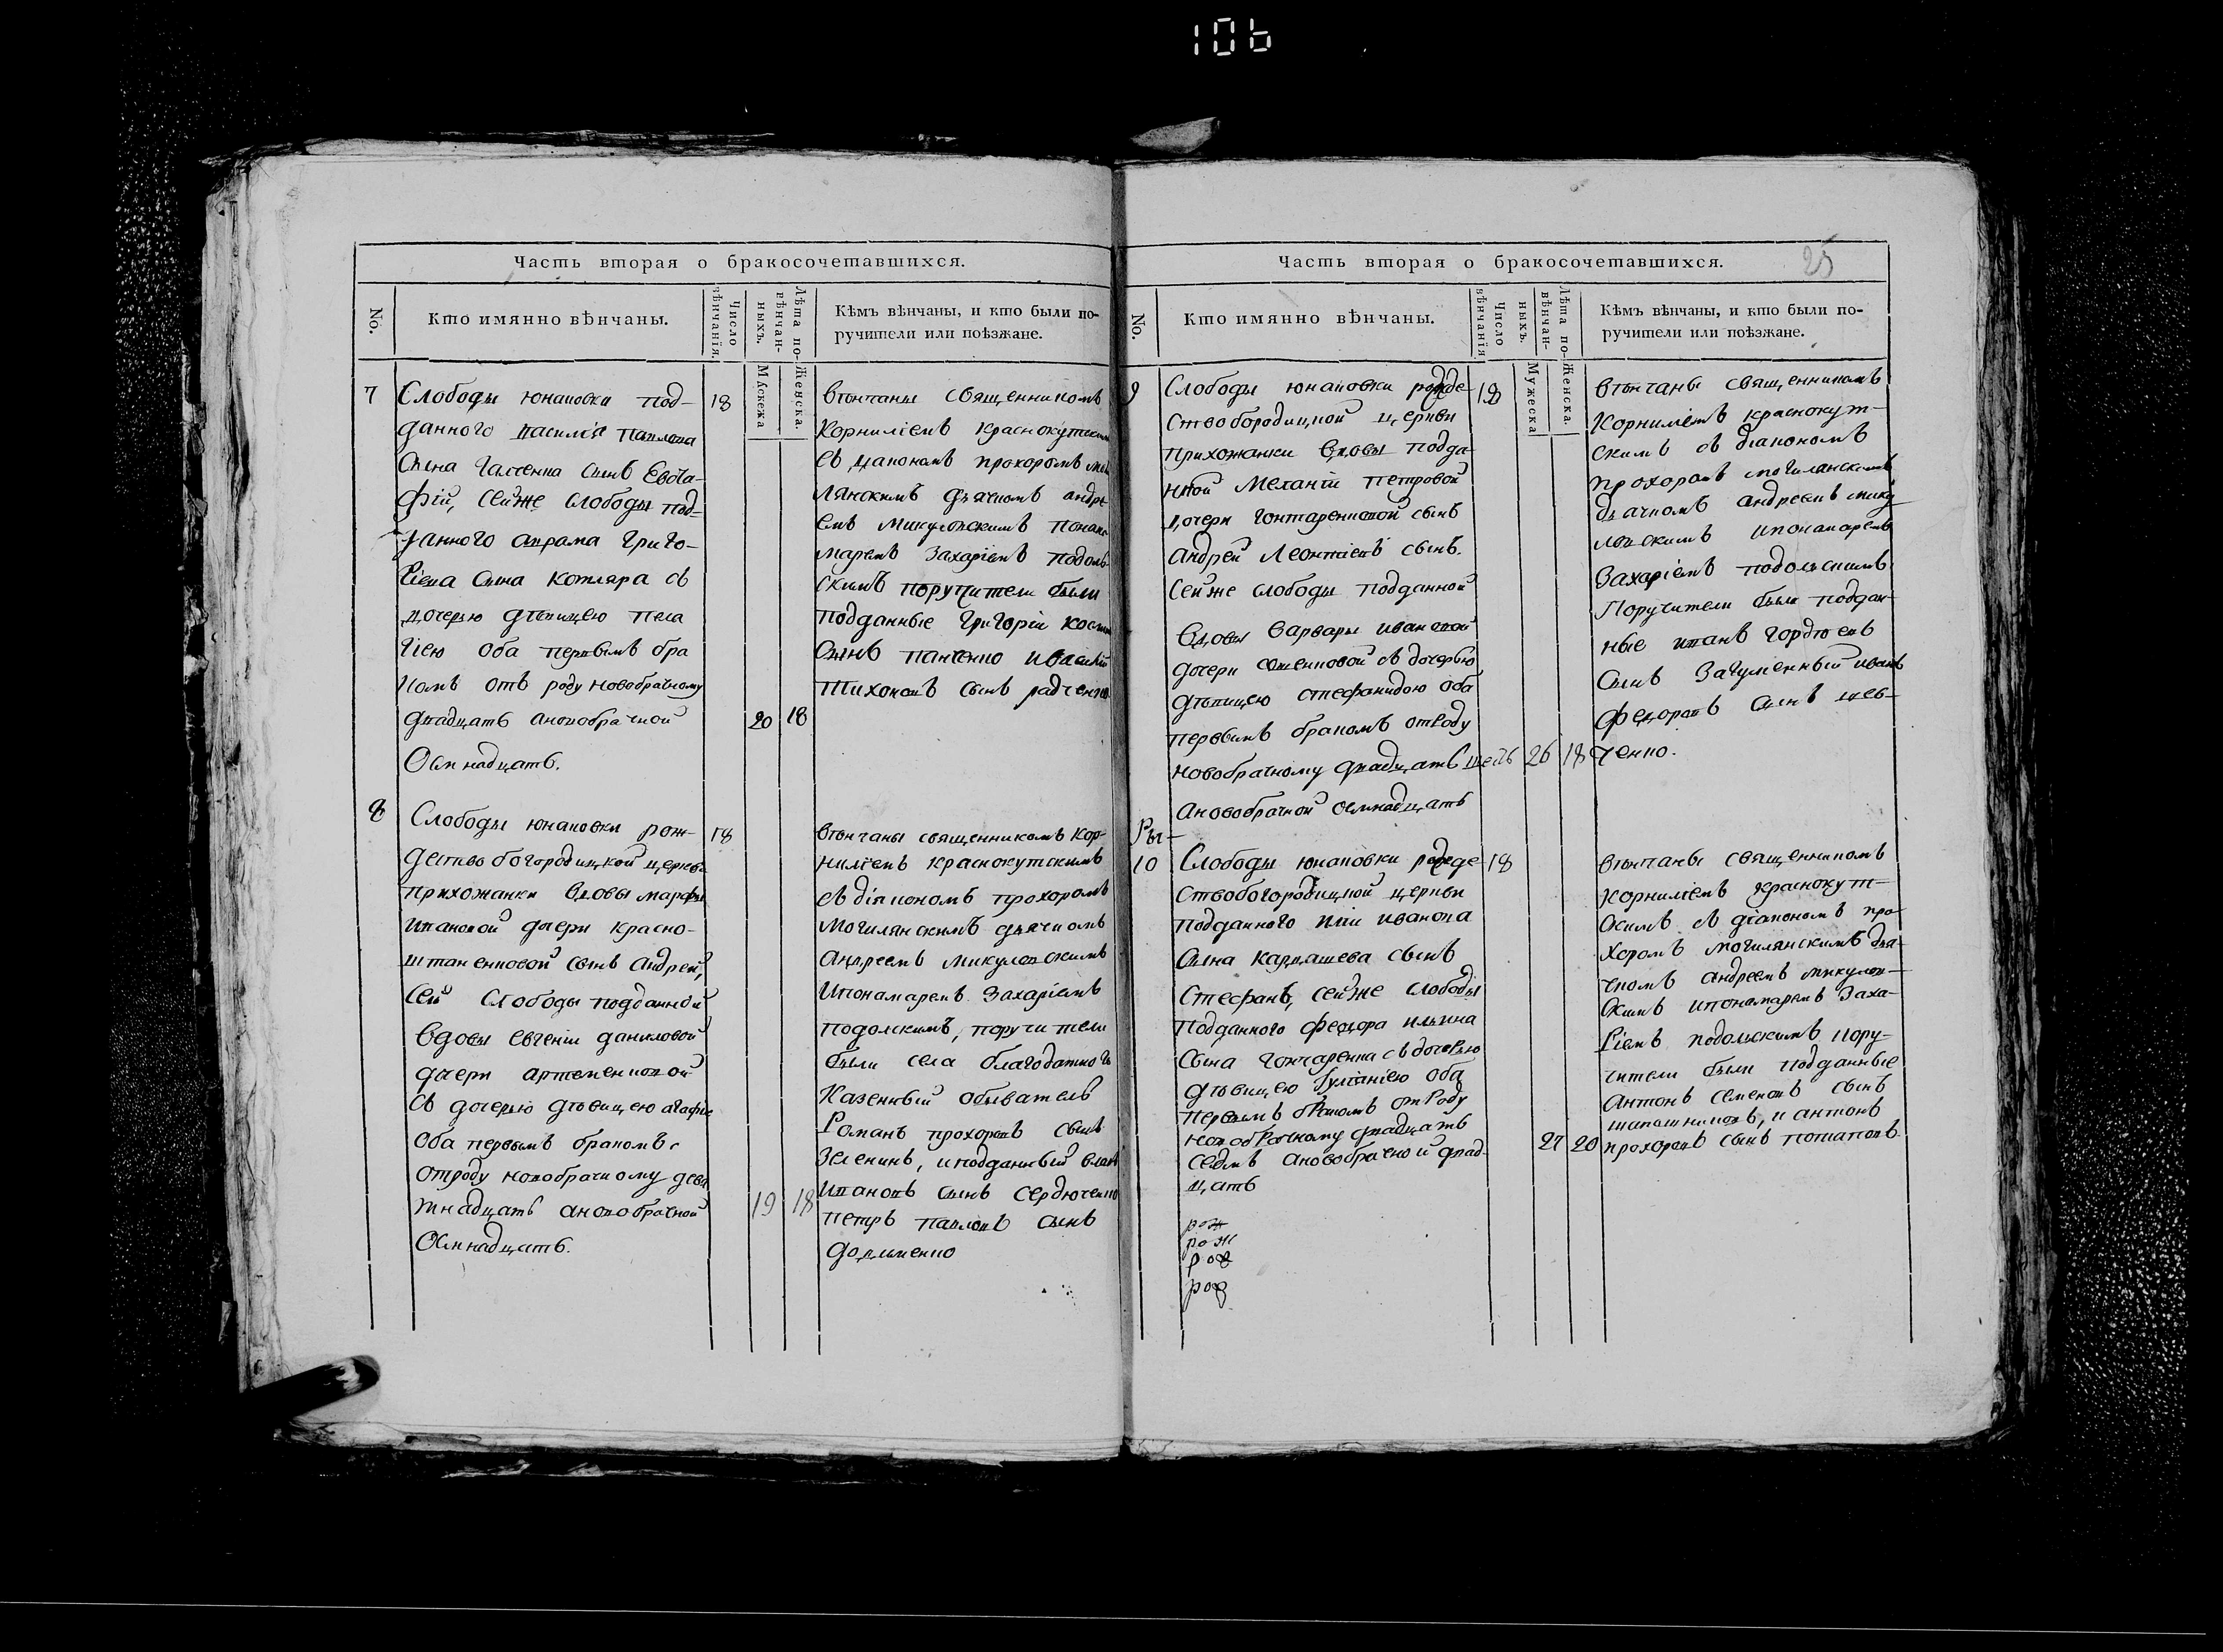 106
Часть вторая о бракосочетавшихся.
No.
Кто имянно вѣнчаны.
Число вѣнчанія.
Лѣта повѣнчанныхъ.
Мужеска
Женска.
Кѣмъ вѣнчаны, и кто были по-
ручители или поѣзжане.
7
Слободы юнаковки под-
данного василія павлова
сына галченка сынъ Евста-
фій, сейже слободы под-
данного аврама григо-
ріева сына котляра съ
дочерью дѣвицею пела
гіею оба первымъ бра
комъ отъ роду новобрачному
двадцать ановобрачной
Осмнадцать.
18
20
18
вѣнчаны священникомъ
Корниліемъ краснокутским
съ диакономъ прохоромъ мог
лянскимъ дьячкомъ андре
емъ микуловскимъ понама
маремъ Захаріемъ подоль
скимъ поручители были
подданные григорій косм
сынъ панченко и василій
тихоновъ сынъ радченко
8
Слободы юнаковки рож-
дество богородицкой церкви
прихожанки вдовы марфы
ивановой дочери красно-
штаненковой сынъ андрей,
сей слободы подданной
вдовы евгеніи даниловой
дочери артеменковой
съ дочерью дѣвицею агафіе
оба первымъ бракомъ
отроду новобрачному девя
тнадцать ановобрачной
Осмнадцать.
18
19
18
вѣнчаны священникомъ Кор-
ниліемъ краснокутскимъ
съ діакономъ прохоромъ
могилянскимъ дьячкомъ
андреемъ микуловскимъ
ипонамаремъ Захаріемъ
подолскимъ, поручители
были села благодатного
казенный обыватель
Романъ прохоровъ сынъ
Зеленинъ, иподданный
ивановъ сынъ сердюченко
петръ павловъ сынъ
25
Часть вторая о бракосочетавшихся.
No.
Кто имянно вѣнчаны.
Число вѣнчанія
Лѣта повѣнчанныхъ.
Мужеска
Женска.
Кѣмъ вѣнчаны, и кто были по-
ручители или поѣзжане.
9
Слободы юнаковки рожде
ствобородицкой церкви
прихожанки вдовы подда-
нной меланіи петровой
дочери гонтаренковой сынъ
андрей леонтіевъ сынъ.
сейже слободы подданной
вдовы варвары ивановой
дочери съ дочерью
дѣвицею стефанидою оба
первымъ бракомъ отроду
новобрачному двадцать шесть
ановобрачной осмнадцать
18
26
18
вѣнчаны священникомъ
корниліемъ краснокут-
скимъ съ діакономъ
прохоромъ могилянскимъ
дьячкомъ андреемъ мику
ловскимъ ипонамаремъ
Захаріемъ подольскимъ
Поручители были поддан-
ные иванъ гордѣевъ
сынъ Загуменный иванъ
федоровъ сынъ шев-
ченко.
10
Слободы юнаковки рожде
ствобогородицкой церкви
подданного иліи иванова
сына кардашева сынъ
Стефанъ, сейже слободы
подданного федора ильина
сына гончаренка съ дочерью
дѣвицею Іуліаніею оба
первымъ бракомъ отроду
новобрачному двадцать
седмь ановобрачной двад-
цать
18
27
20
вѣнчаны священникомъ
корниліемъ краснокут-
скимъ съ діакономъ про-
хоромъ могилянскимъ дья-
чкомъ андреемъ микулов-
скимъ ипонамаремъ Заха-
ріемъ подольскимъ пору-
чители были подданные
антонъ семеновъ сынъ
шапошниковъ, и антонъ
прохоровъ сынъ потаповъ
рож
рож
рож
рож